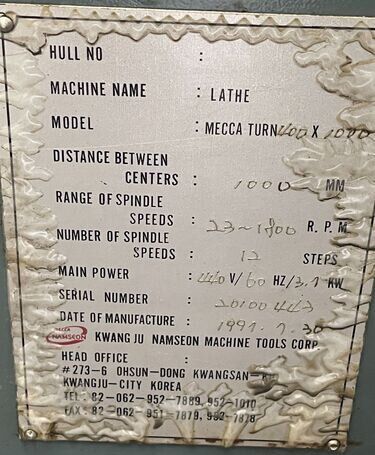 HULL NO :
MACHINE NAME : LATHE
MODEL : MECCA TURN 400 X 1000
DISTANCE BETWEEN
CENTERS : 1000 MM
RANGE OF SPINDLE
SPEEDS : 23~1800 R.P.M
NUMBER OF SPINDLE
SPEEDS : 12 STEPS
MAIN POWER : 440 V/ 60 HZ/3.7 KW
SERIAL NUMBER :
DATE OF MANUFACTURE : 1997. 7. 30
MECCA
NAMSEON KWANG JU NAMSEON MACHINE TOOLS CORP.
HEAD OFFICE :
#273-6 OHSUN-DONG KWANGSAN-
KWANGJU-CITY KOREA
TEL : 82-062-952-7889, 952-1010
FAX : 82-062-951-7879, 952-7878